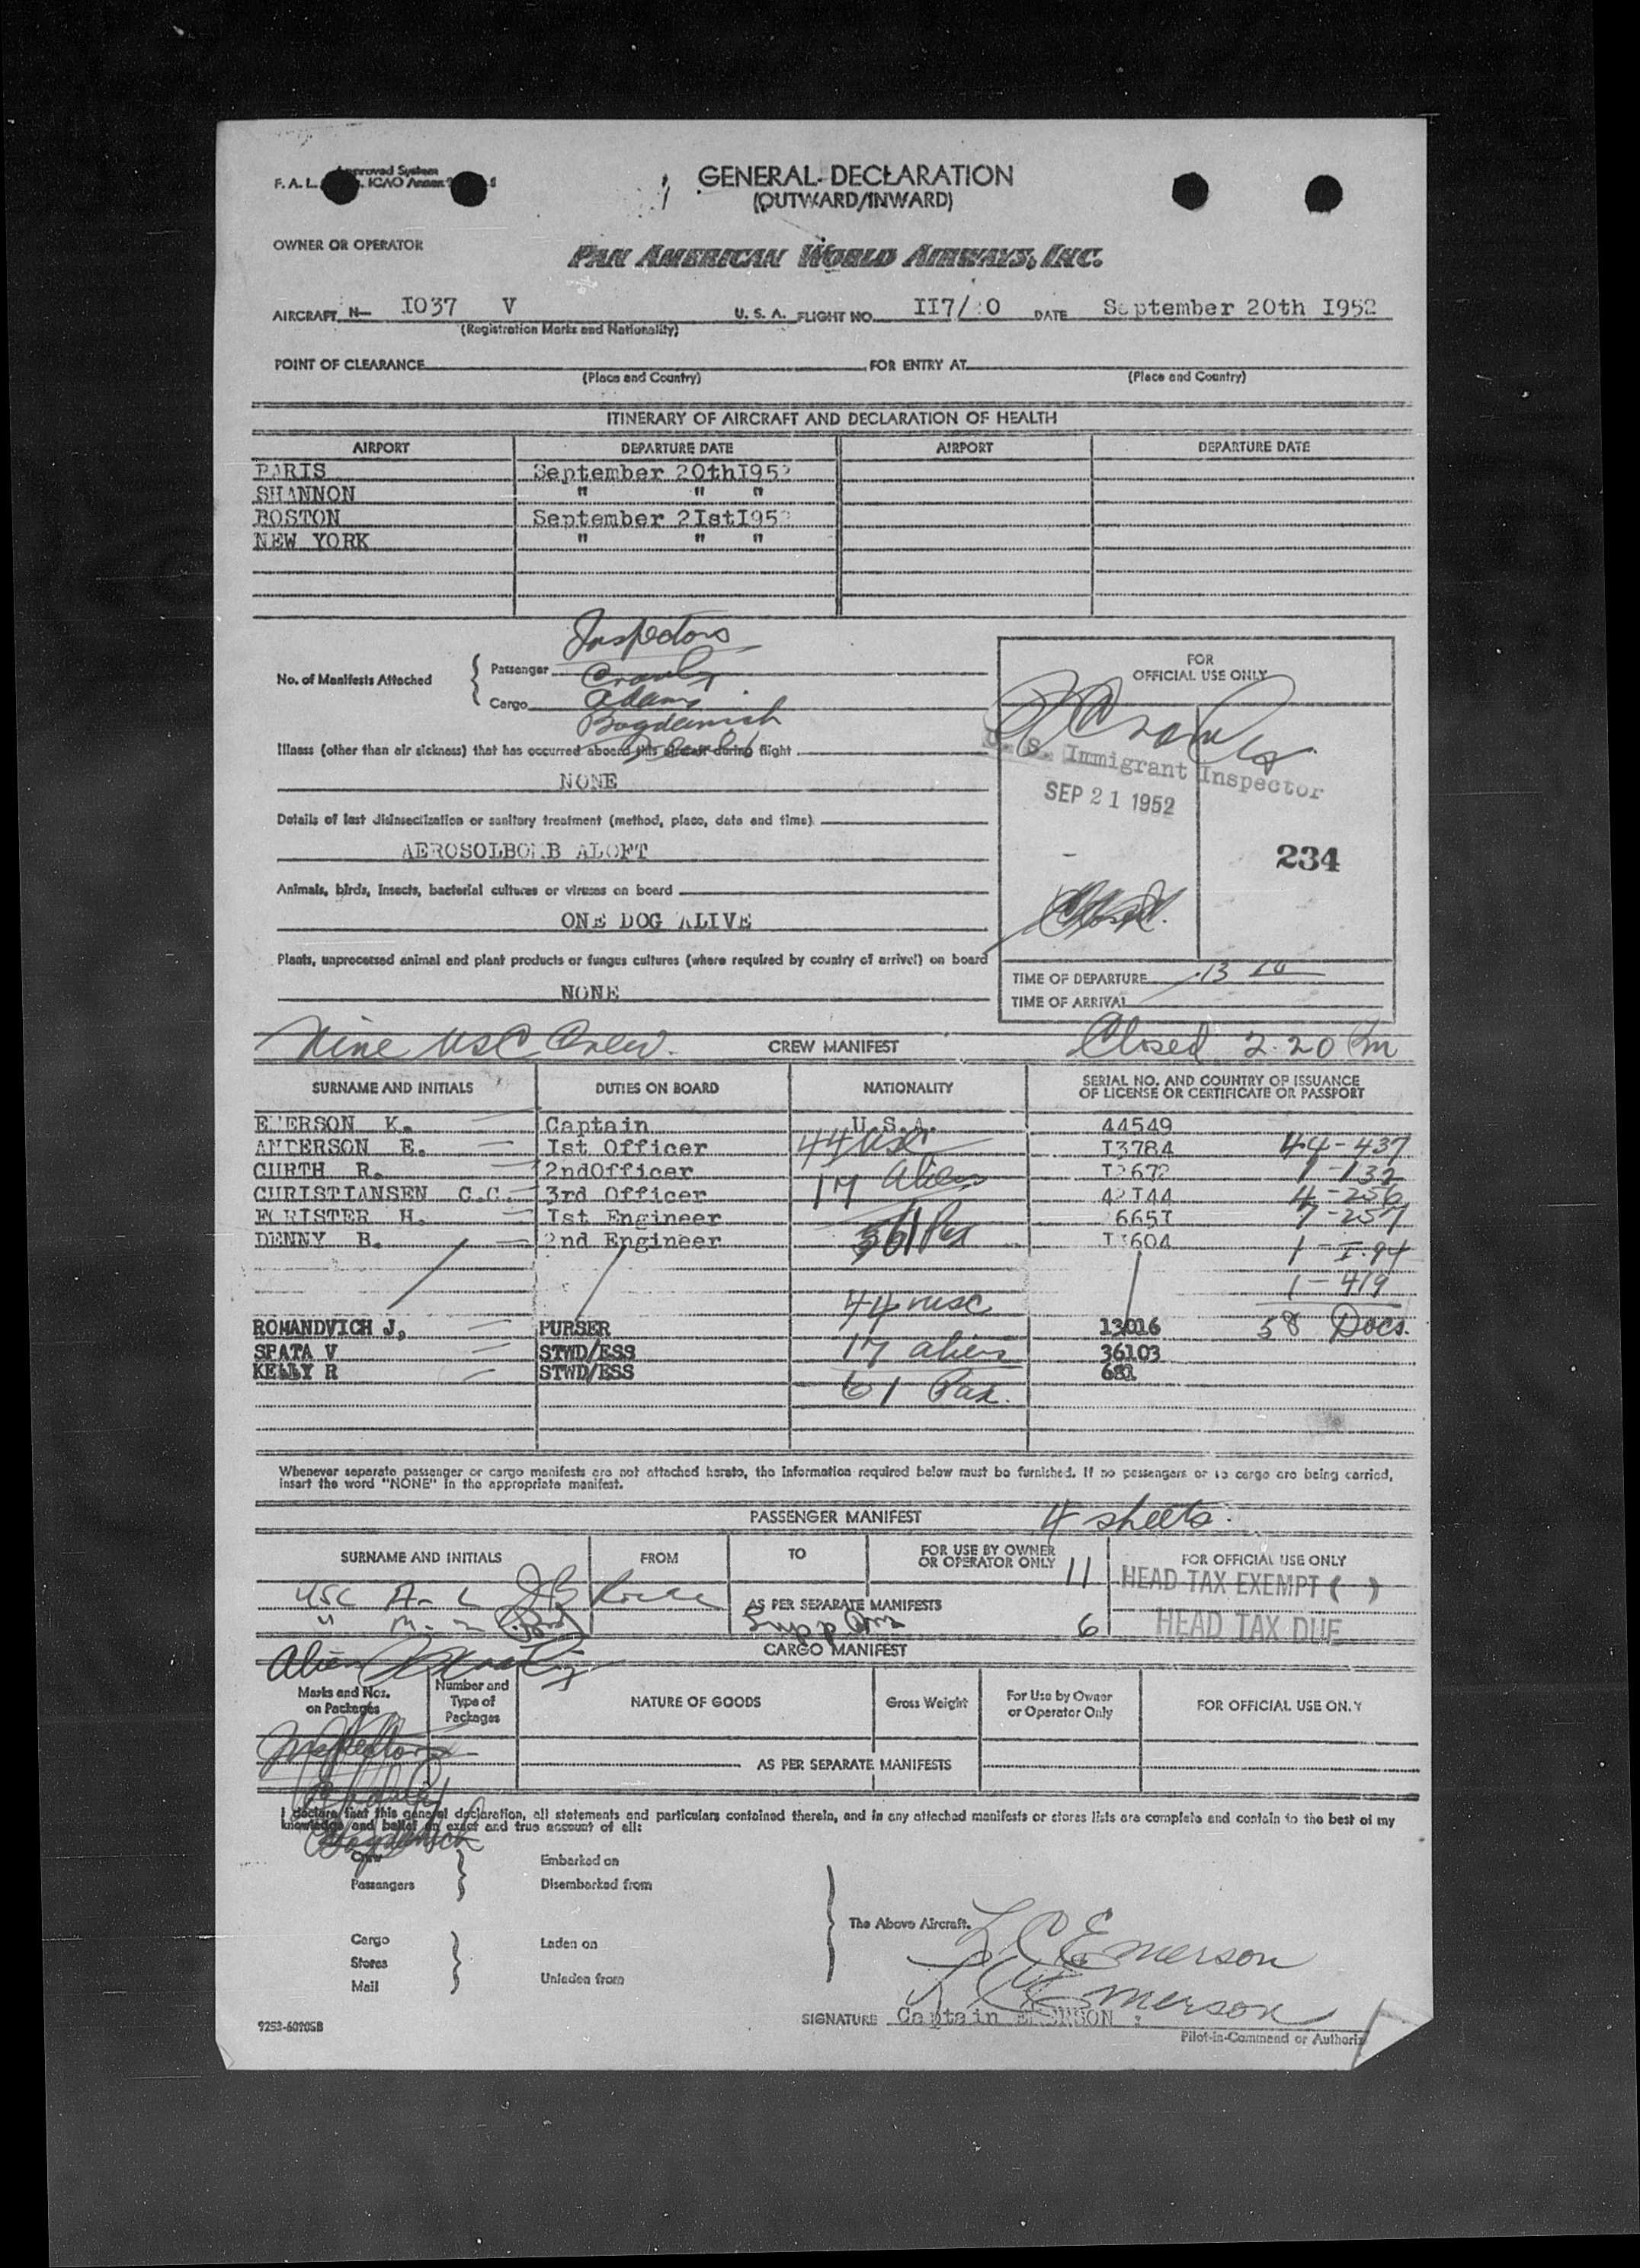 GENERAL DECLARATION
(OUTWARD/INWARD)
OWNER OR OPERATOR
PAN AMERICAN WORLD AIRWAYS, INC.
AIRCRAFT N- I037 V U. S. A. FLIGHT NO. II7/ 0 DATE September 20th I952
(Registration Marks and Nationality)
POINT OF CLEARANCE FOR ENTRY AT
(Place and Country) (Place and Country)
ITINERARY OF AIRCRAFT AND DECLARATION OF HEALTH
AIRPORT DEPARTURE DATE AIRPORT DEPARTURE DATE
PARIS September 20thI952
SHANNON " " "
BOSTON September 2IstI952
NEW YORK " " "
Inspectors
No. of Manifests Attached
Passenger Crawley
Cargo Adams
Bogdanich
Illness (other than air sickness) that has occurred aboard this aircraft during flight
NONE
Details of last disinsectization or sanitary treatment (method, place, date and time)
AEROSOLBOMB ALOFT
Animals, birds, insects, bacterial cultures or viruses on board
ONE DOG ALIVE
Plants, unprocessed animal and plant products or fungus cultures (where required by country of arrival) on board
NONE
FOR
OFFICIAL USE ONLY
U. S. Immigrant Inspector
SEP 21 1952
234
TIME OF DEPARTURE
TIME OF ARRIVAL
Nine USC Crew. CREW MANIFEST Closed 2.20 Pm
SURNAME AND INITIALS DUTIES ON BOARD NATIONALITY SERIAL NO. AND COUNTRY OF ISSUANCE
OF LICENSE OR CERTIFICATE OR PASSPORT
EMERSON K. Captain U.S.A. 44549
ANDERSON E. Ist Officer 44 usc I3784 44-437
CURTH R. 2ndOfficer 17 Aliens I2672 1-132
CHRISTIANSEN C.C. 3rd Officer 42I44 4-256
FORISTER H. Ist Engineer 61 Pax 665I 7-257
DENNY B. 2nd Engineer I3604 1-I.94
1-419
44 usc
ROMANDVICH J, PURSER 13016 58 Docs.
SPATA V STWD/ESS 17 aliens 36103
KELLY R STWD/ESS 681
61 Pax.
Whenever separate passenger or cargo manifests are not attached hereto, the information required below must be furnished. If no passengers or no cargo are being carried,
insert the word "NONE" in the appropriate manifest.
PASSENGER MANIFEST 4 sheets.
SURNAME AND INITIALS FROM TO FOR USE BY OWNER
OR OPERATOR ONLY 11 FOR OFFICIAL USE ONLY
HEAD TAX EXEMPT ( )
USC A-L AS PER SEPARATE MANIFESTS
" M-Z 6 HEAD TAX DUE
Alien CARGO MANIFEST
Marks and Nos.
on Packages Number and
Type of
Packages NATURE OF GOODS Gross Weight For Use by Owner
or Operator Only FOR OFFICIAL USE ONLY
Inspectors
AS PER SEPARATE MANIFESTS
I declare that this general declaration, all statements and particulars contained therein, and in any attached manifests or stores lists are complete and contain to the best of my
knowledge and belief an exact and true account of all:
Bogdanich
Crew Embarked on
Passengers Disembarked from
The Above Aircraft.
Cargo Laden on
Stores
Mail Unladen from
L C Emerson
L C Emerson
SIGNATURE Captain EMERSON
Pilot-in-Command or Authoriz